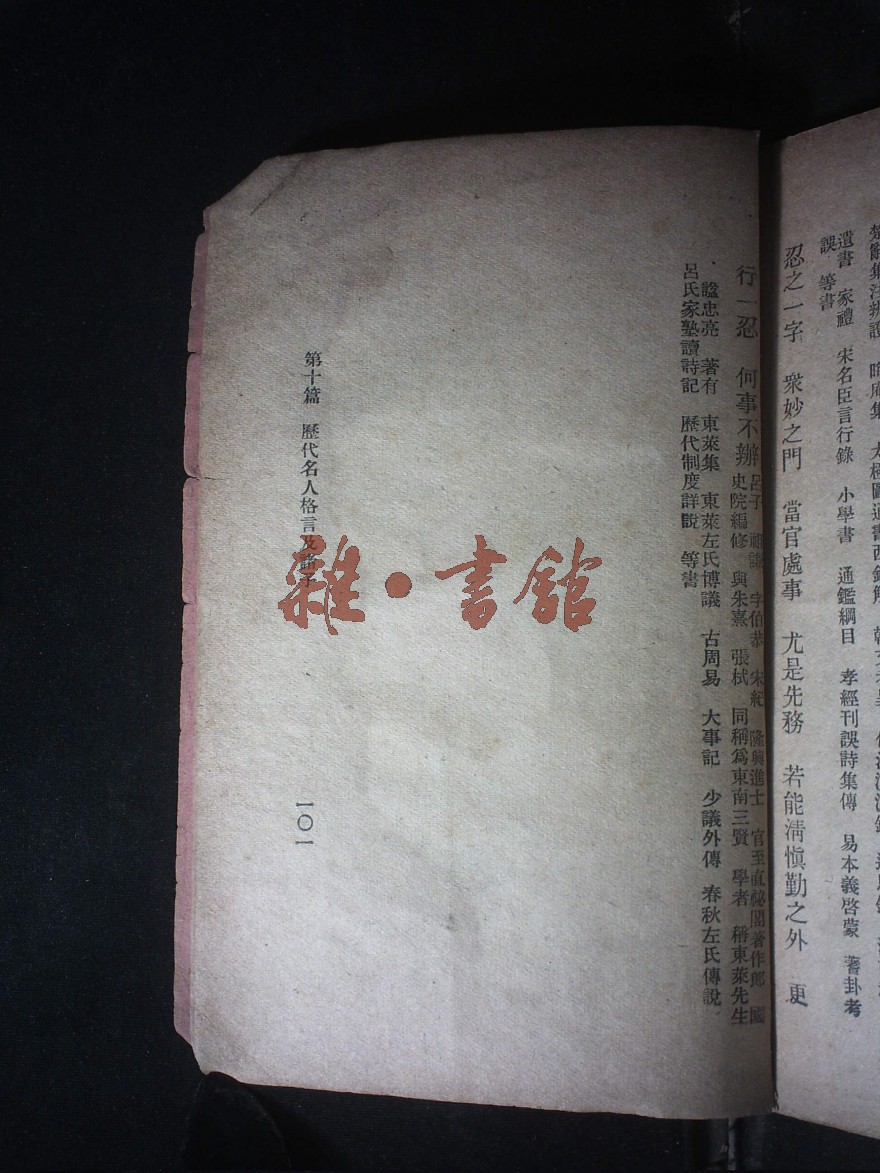 遺書 家禮 宋名臣言行錄 小學書 通鑑綱目 孝經刊誤詩集傳 易本義啓蒙 蓍卦考
誤 等書
忍之一字 衆妙之門 當官處事 尤是先務 若能淸愼勤之外 更
行一忍 何事不辦
呂子 祖謙 字伯恭 宋紀 隆興進士 官至直祕閣著作郎 國
史院編修 與朱熹 張栻 同稱爲東南三賢 學者 稱東萊先生
諡忠亮 著有 東萊集 東萊左氏博議 古周易 大事記 少議外傳 春秋左氏傳說
呂氏家塾讀詩記 歷代制度詳說 等書
第十篇 歷代名人格言及
一〇一
雜·書館